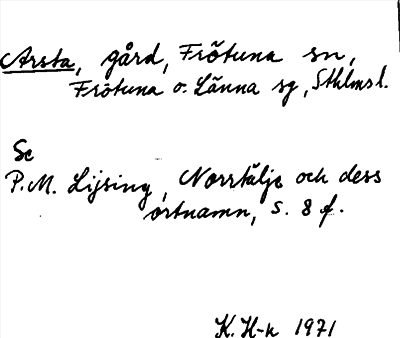 Arsta, gård, Frötuna sn,
Frötuna o. Länna sg, Sthlmsl.
Se
P.M. Lijsing, Norrtälje och dess
ortnamn, s. 8 f.
K. H-k 1971